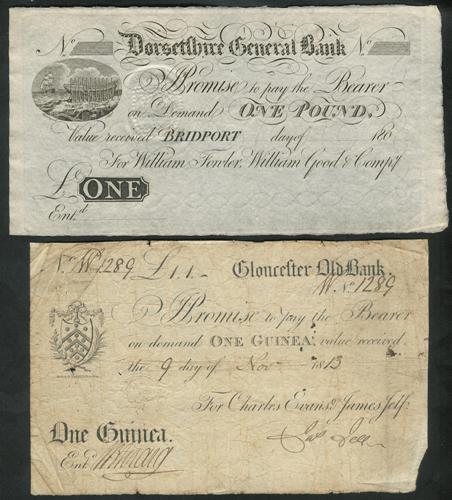 No Dorsetshire General Bank No
I Promise to pay the Bearer
on Demand ONE POUND.
Value received BRIDPORT day of 180
For William Fonder, William Good & Compy.
£ ONE
Entd.
No. W1289 £1.1.- Gloucester Old Bank.
W No. 1289
I Promise to pay the Bearer
on demand ONE GUINEA, value received
the 9 day of Nov 1813
For Charles Evans & James Jelf.
One Guinea.
Entd.